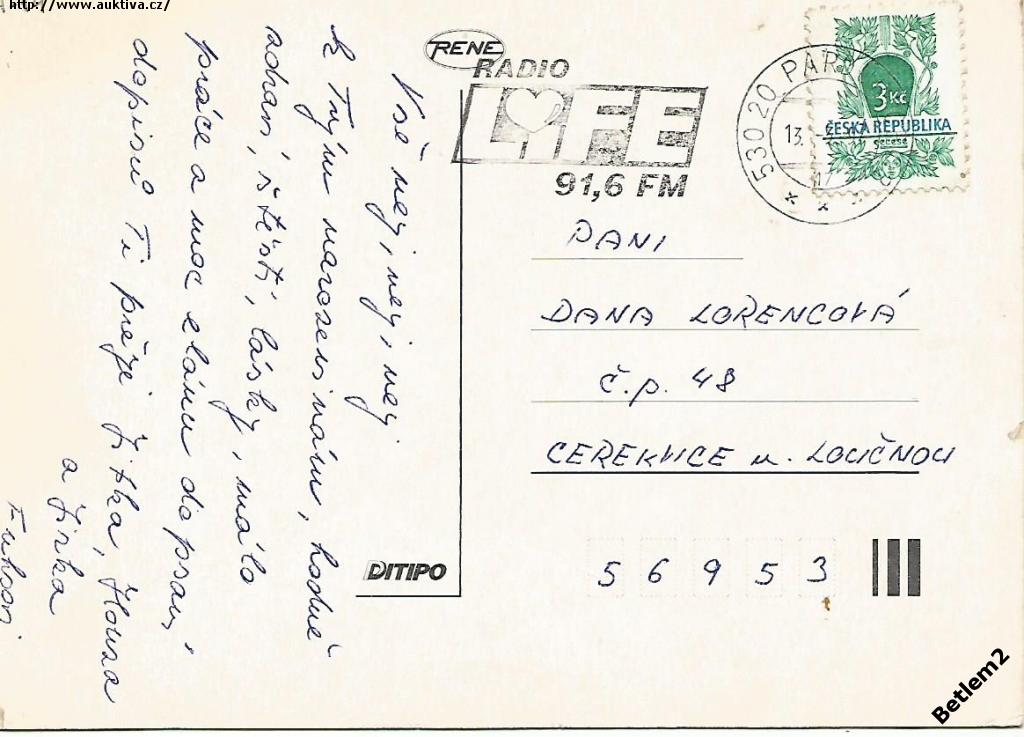 http://www.auktiva.cz/
Vše nej, nej, nej
k Tvým narozeninám, hodně
zdraví, štěstí, lásky, málo
práce a moc elánu do psaní
dopisů Ti přeje Jitka, Honza
a Jirka
RENE
RADIO
LIFE
91,6 FM
530 20 PARD
13.
3 Kč
ČESKA REPUBLIKA
secese
PANI
DANA LORENCOVÁ
č.p. 48
CEREKVICE n. LOUČNOU
56953
DITIPO
Betlem2